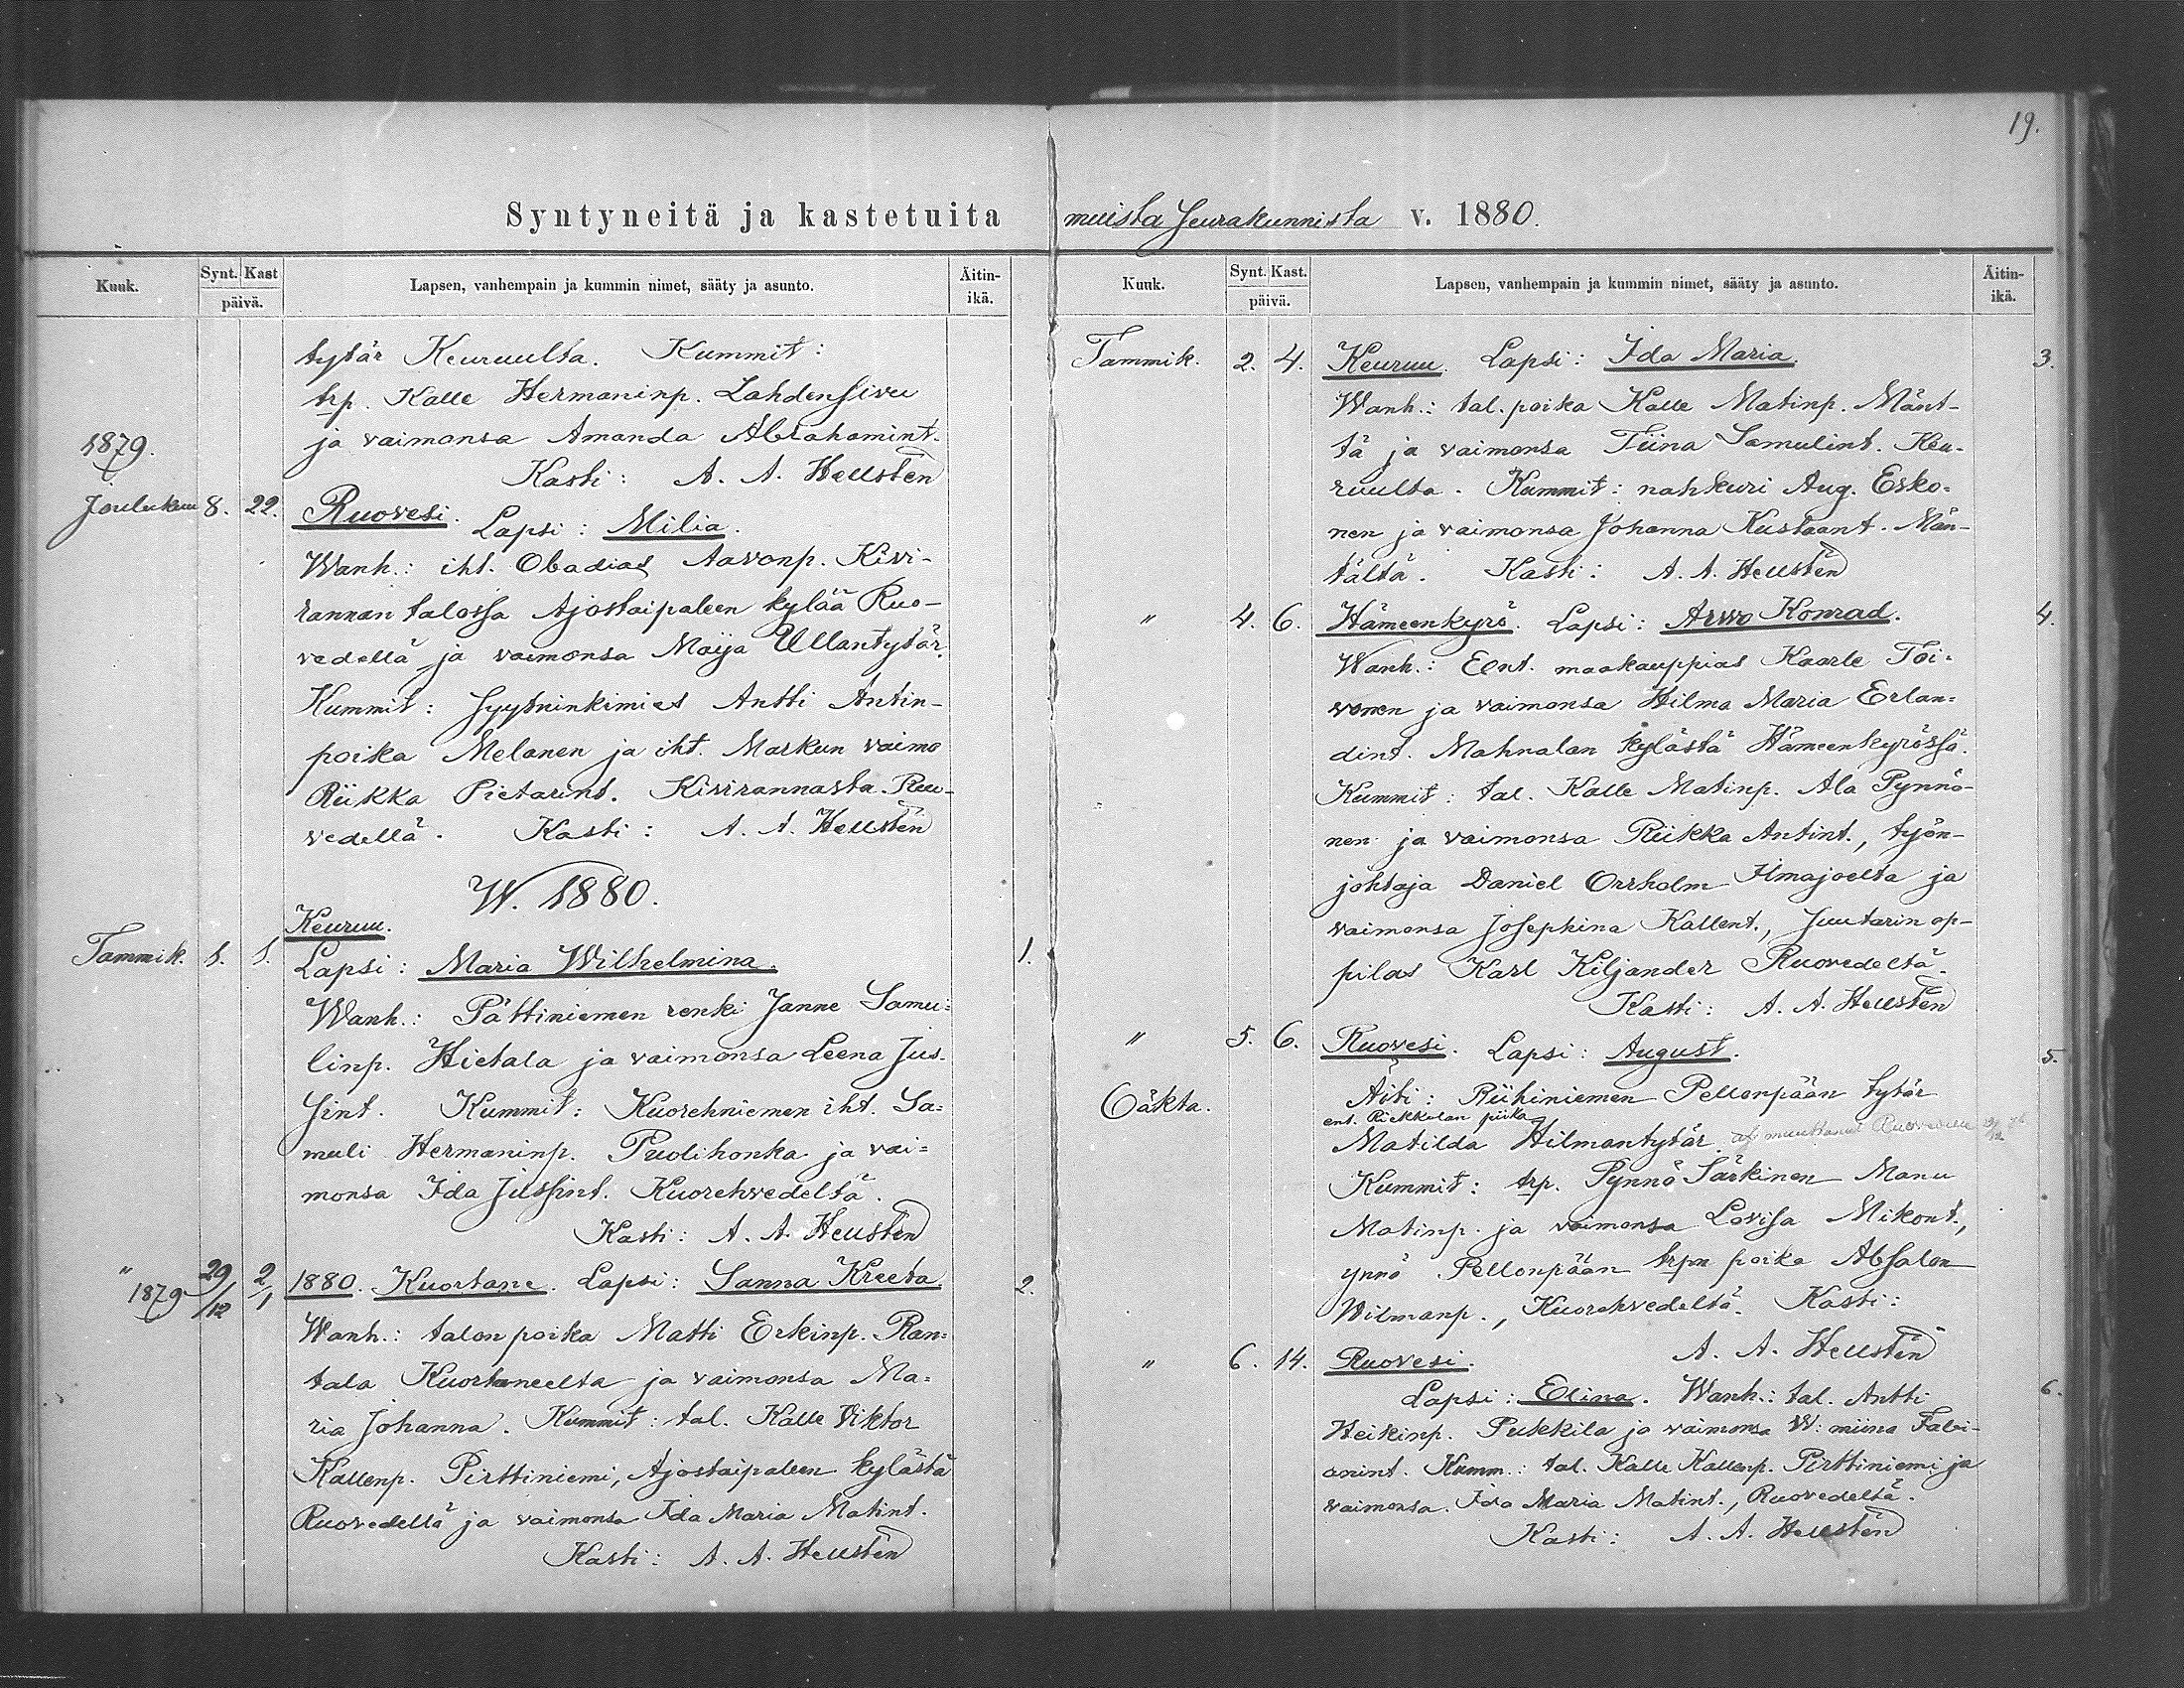 19.
Syntyneitä ja kastetuita muista Seurakunnista v. 1880.
Kuuk. Synt. Kast päivä. Lapsen, vanhempain ja kummin nimet, sääty ja asunto. Äitin-ikä.
tytär Keuruulta. Kummit:
trp. Kalle Hermaninp. Lahdensivu
ja vaimonsa Amanda Abrahamint.
1879.
Kasti: A. A. Hellstén
Joulukuu 8. 22. Ruovesi. Lapsi: Milia.
Wanh.: iht. Obadias Aavonp. Kivi-
rannan talossa Ajostaipaleen kylää Ruo-
vedellä ja vaimonsa Maija Ullantytär.
Kummit: Syytninkimies Antti Antin-
poika Melanen ja iht. Markun vaimo
Riikka Pietarint. Kivirannasta Ruo-
vedellä. Kasti: A. A. Hellstén
W. 1880.
Keuruu.
Tammik. 1. 1. Lapsi: Maria Wilhelmina. 1.
Wanh.: Pättiniemen renki Janne Samu-
linp. Hietala ja vaimonsa Leena Jus-
sint. Kummit: Kuorehniemen iht. Sa-
muli Hermaninp. Puolihonka ja vai-
monsa Ida Jussint. Kuorehvedeltä.
Kasti: A. A. Hellstén
" 1879 29/12 2/1 1880. Kuortane. Lapsi: Sanna Kreeta 2.
Wanh.: talon poika Matti Erkinp. Ran-
tala Kuortaneelta ja vaimonsa Ma-
ria Johanna. Kummit: tal. Kalle Viktor
Kallenp. Pirttiniemi, Ajostaipaleen kylästä
Ruovedellä ja vaimonsa Ida Maria Matint.
Kasti: A. A. Hellstén
Kuuk. Synt. Kast. päivä. Lapsen, vanhempain ja kummin nimet, sääty ja asunto. Äitin-ikä.
Tammik. 2. 4. Keuruu. Lapsi: Ida Maria. 3.
Wanh.: tal. poika Kalle Matinp. Mänt-
tä ja vaimonsa Tiina Samulint. Keu-
ruulta. Kummit: nahkuri Aug. Esko-
nen ja vaimonsa Johanna Kustaant. Män-
tältä. Kasti: A. A. Hellstén
" 4. 6. Hämeenkyrö. Lapsi: Arwo Konrad. 4.
Wanh.: Ent. maakauppias Kaarle Toi-
vonen ja vaimonsa Hilma Maria Erlan-
dint. Mahnalan kylästä Hämeenkyrössä.
Kummit: tal. Kalle Matinp. Ala Pynnö-
nen ja vaimonsa Riikka Antint., työn-
johtaja Daniel Orrholm Ilmajoelta ja
vaimonsa Josephina Kallent., Suutarin op-
pilas Karl Kiljander Ruovedeltä.
Kasti: A. A. Hellstén
" 5. 6. Ruovesi. Lapsi: August. 5.
Oäkta. Äiti: Riihiniemen Pellonpään tytär
ent. Riekkolan piika
Matilda Hilmantytär. muuttanut Ruovedelle
Kummit: trp. Pynnö Särkinen Manu
Matinp. ja vaimonsa Lovisa Mikont.,
ynnö Pellonpään trpn poika Absalon
Wilmanp., Kuorehvedeltä. Kasti:
A. A. Hellstén
" 6. 14. Ruovesi.
Lapsi: Elina. Wanh.: tal. Antti 6.
Heikinp. Pukkila ja vaimonsa W:miina Fabi-
anint. Kumm.: tal. Kalle Kallenp. Pirttiniemi ja
vaimonsa Ida Maria Matint., Ruovedeltä.
Kasti: A. A. Hellstén